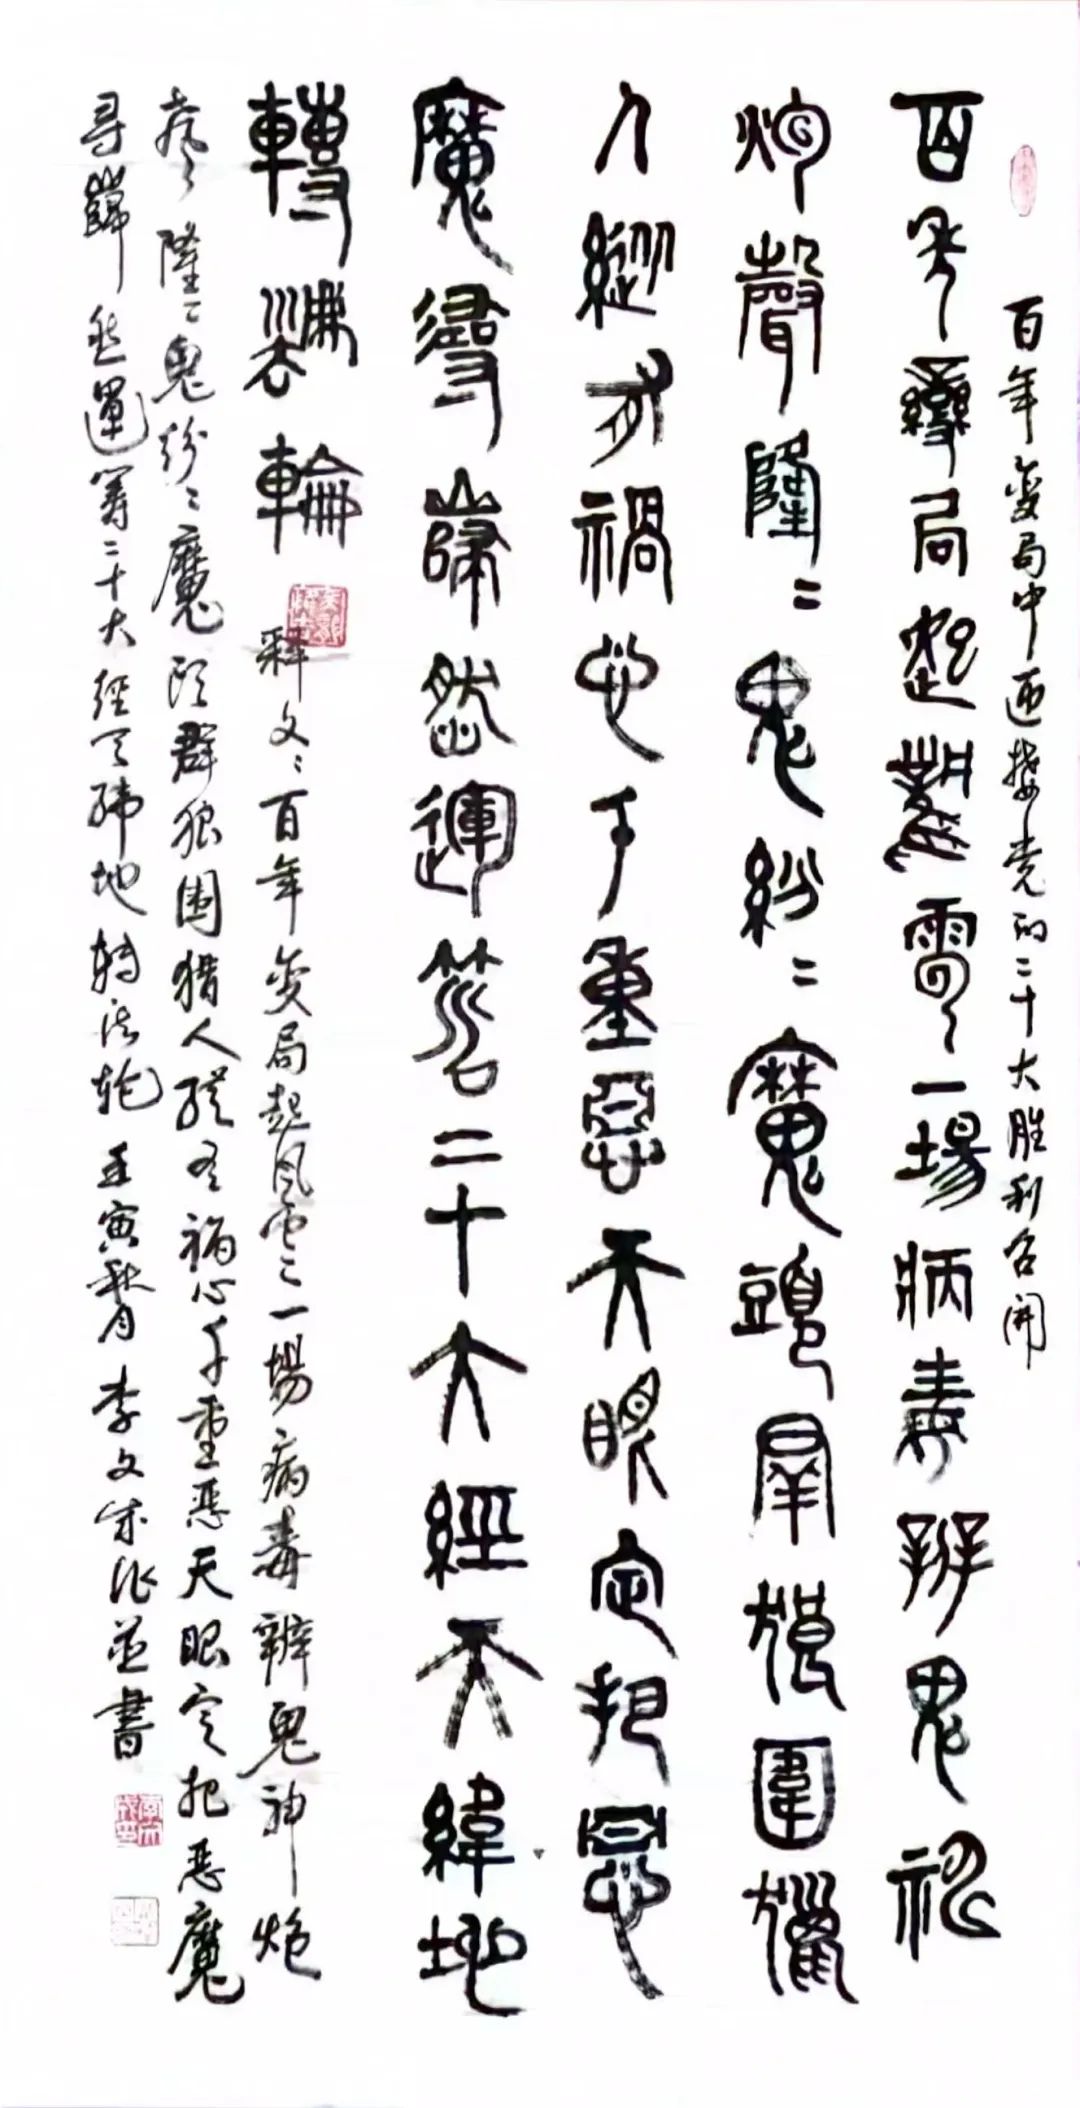 百年變局中迎接党的二十大胜利召开
百年變局起風雲一場病毒辨鬼神
炮聲隆〻鬼紛〻魔頭群狼圍獵
人縱有禍心千重惡天眼定把惡
魔尋巋然運籌二十大經天緯地
轉法輪
释文：百年变局起风云〻一場病毒辨鬼神炮
声隆〻鬼纷〻魔頭群狼围猎人纵有祸心千重恶天眼定把恶魔
寻巋然運筹二十大经天纬地转法轮 壬寅秋月李文成作並書